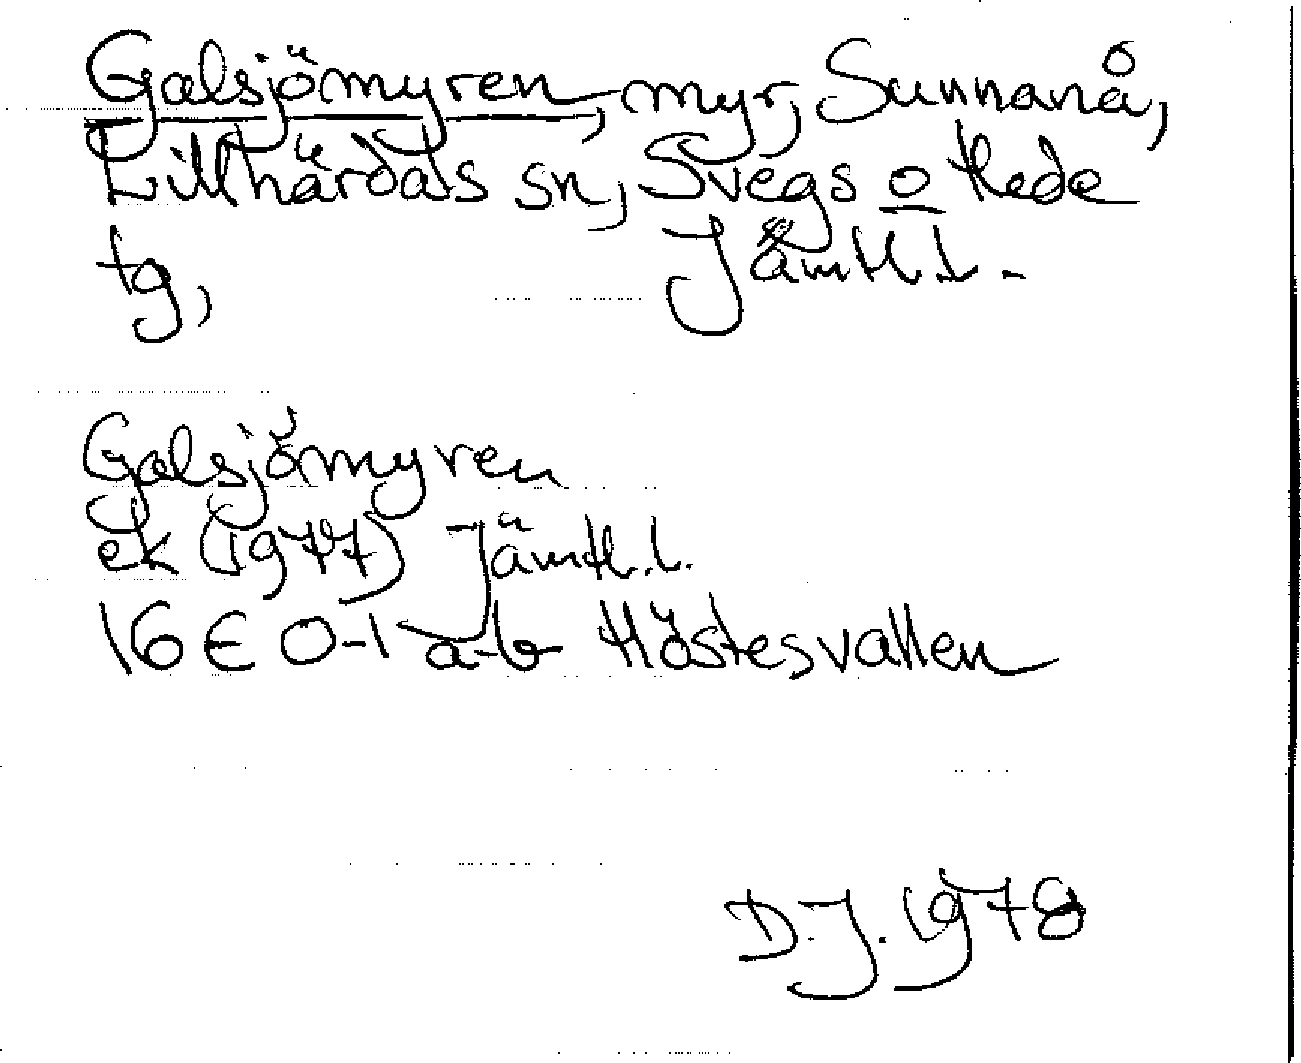 Galsjömyren, myr, Sunnanå,
Lillhärdals sn, Svegs o Hede
tg, Jämtl.l.
Galsjömyren
ek (1977) Jämtl.l.
16 E 0-1 a-b Höstesvallen
D.J. 1978